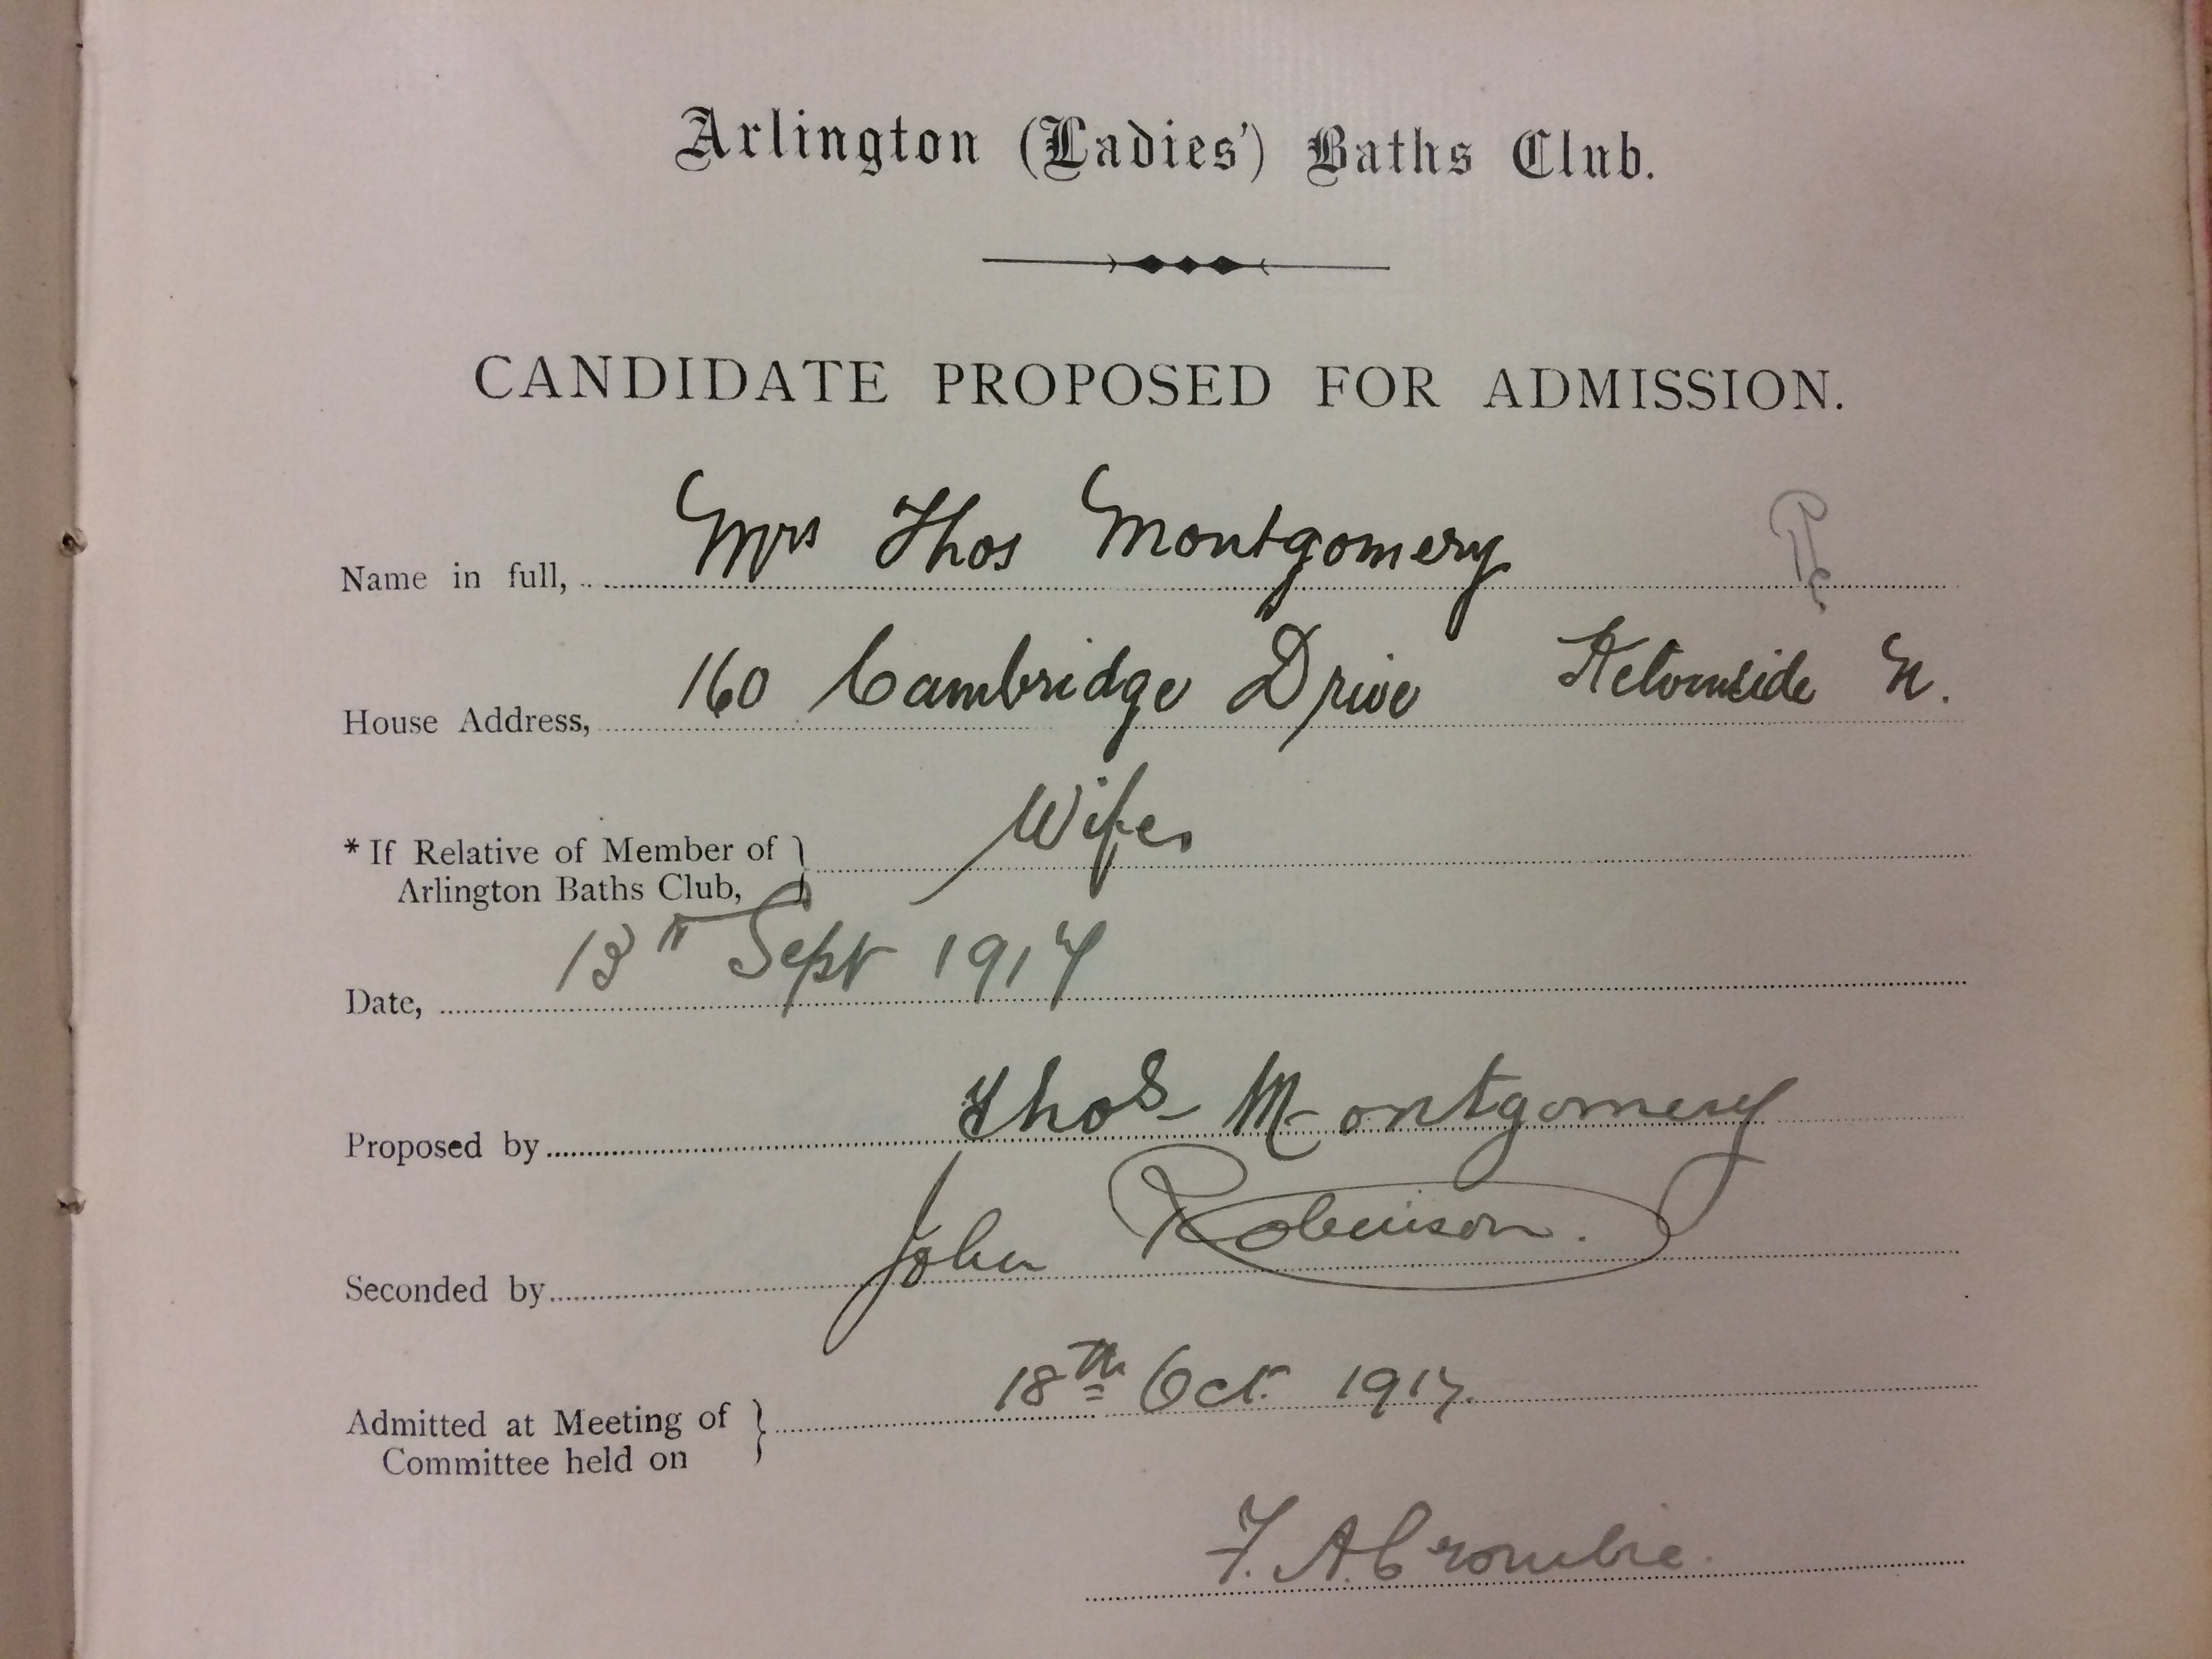 Arlington (Ladies') Baths Club.
CANDIDATE PROPOSED FOR ADMISSION.
Name in full, Mrs Thos Montgomery
House Address, 160 Cambridge Drive Kelvinside N.
* If Relative of Member of
Arlington Baths Club, } Wife
Date, 13th Sept 1917
Proposed by Thos Montgomery
Seconded by John Robinson.
Admitted at Meeting of
Committee held on } 18th Oct. 1917.
F. A. Crombie.